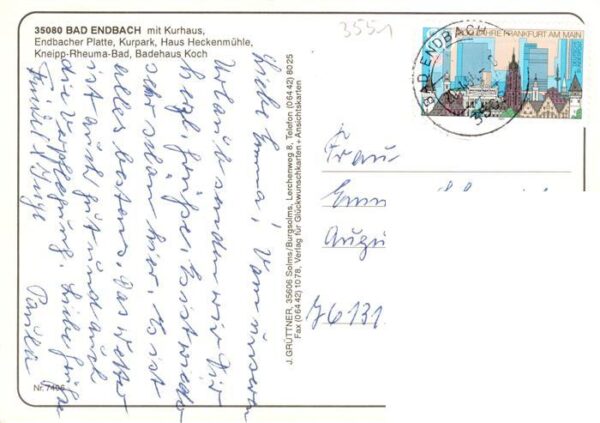 35080 BAD ENDBACH mit Kurhaus,
Endbacher Platte, Kurpark, Haus Heckenmühle,
Kneipp-Rheuma-Bad, Badehaus Koch
Liebe Emma! Von unserem
Urlaub senden wir Dir
herzl. Grüße. Es ist wieder
sehr schön hier. Es ist
alles bestens. Das Wetter
ist auch gut und auch
die Verpflegung. Liebe Grüße
Paula
Nr. 7406
J. GRÜTTNER, 35606 Solms/Burgsolms, Lerchenweg 8, Telefon (06442) 8025
Fax (06442) 1078, Verlag für Glückwunschkarten + Ansichtskarten
3551
JAHRE FRANKFURT AM MAIN
BAD ENDBACH
Frau
Emm
Augu
36131